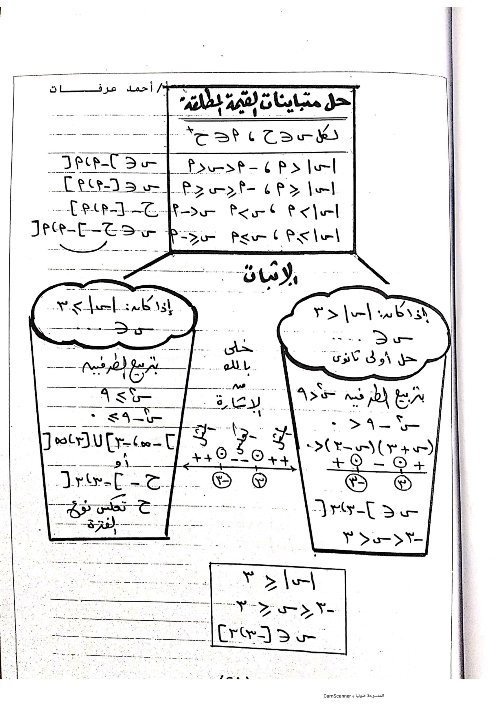 أ/ أحمد عرفات
حل متباينات القيمة المطلقة
لكل س ∈ ح ، م ∈ ح+
|س| < م ، -م < س < م س ∈ ]-م، م[
|س| ≤ م ، -م ≤ س ≤ م س ∈ [-م، م]
|س| > م ، س > م س < -م ح - [-م، م]
|س| ≥ م ، س ≥ م س ≤ -م س ∈ ح - ]-م، م[
الإثبات
إذا كان: |س| < ٣
س ∈ ....
حل أولى ثانوى
بتربيع الطرفين س² < ٩
س² - ٩ < ٠
(س + ٣)(س - ٣) < ٠
+ ⊙ - ⊙ +
-٣ ٣
س ∈ ]-٣، ٣[
-٣ < س < ٣
خلى
بالك
من
الإشارة
++ ⊙ -- ⊙ ++
-٣ ٣
إذا كان: |س| ≥ ٣
س ∈ ....
بتربيع الطرفين
س² ≥ ٩
س² - ٩ ≥ ٠
]-∞، -٣] ∪ [٣، ∞[
أو
ح - ]-٣، ٣[
ح تعكس نوع
الفترة
|س| ≤ ٣
-٣ ≤ س ≤ ٣
س ∈ [-٣، ٣]
الممسوحة ضوئيا بـ CamScanner